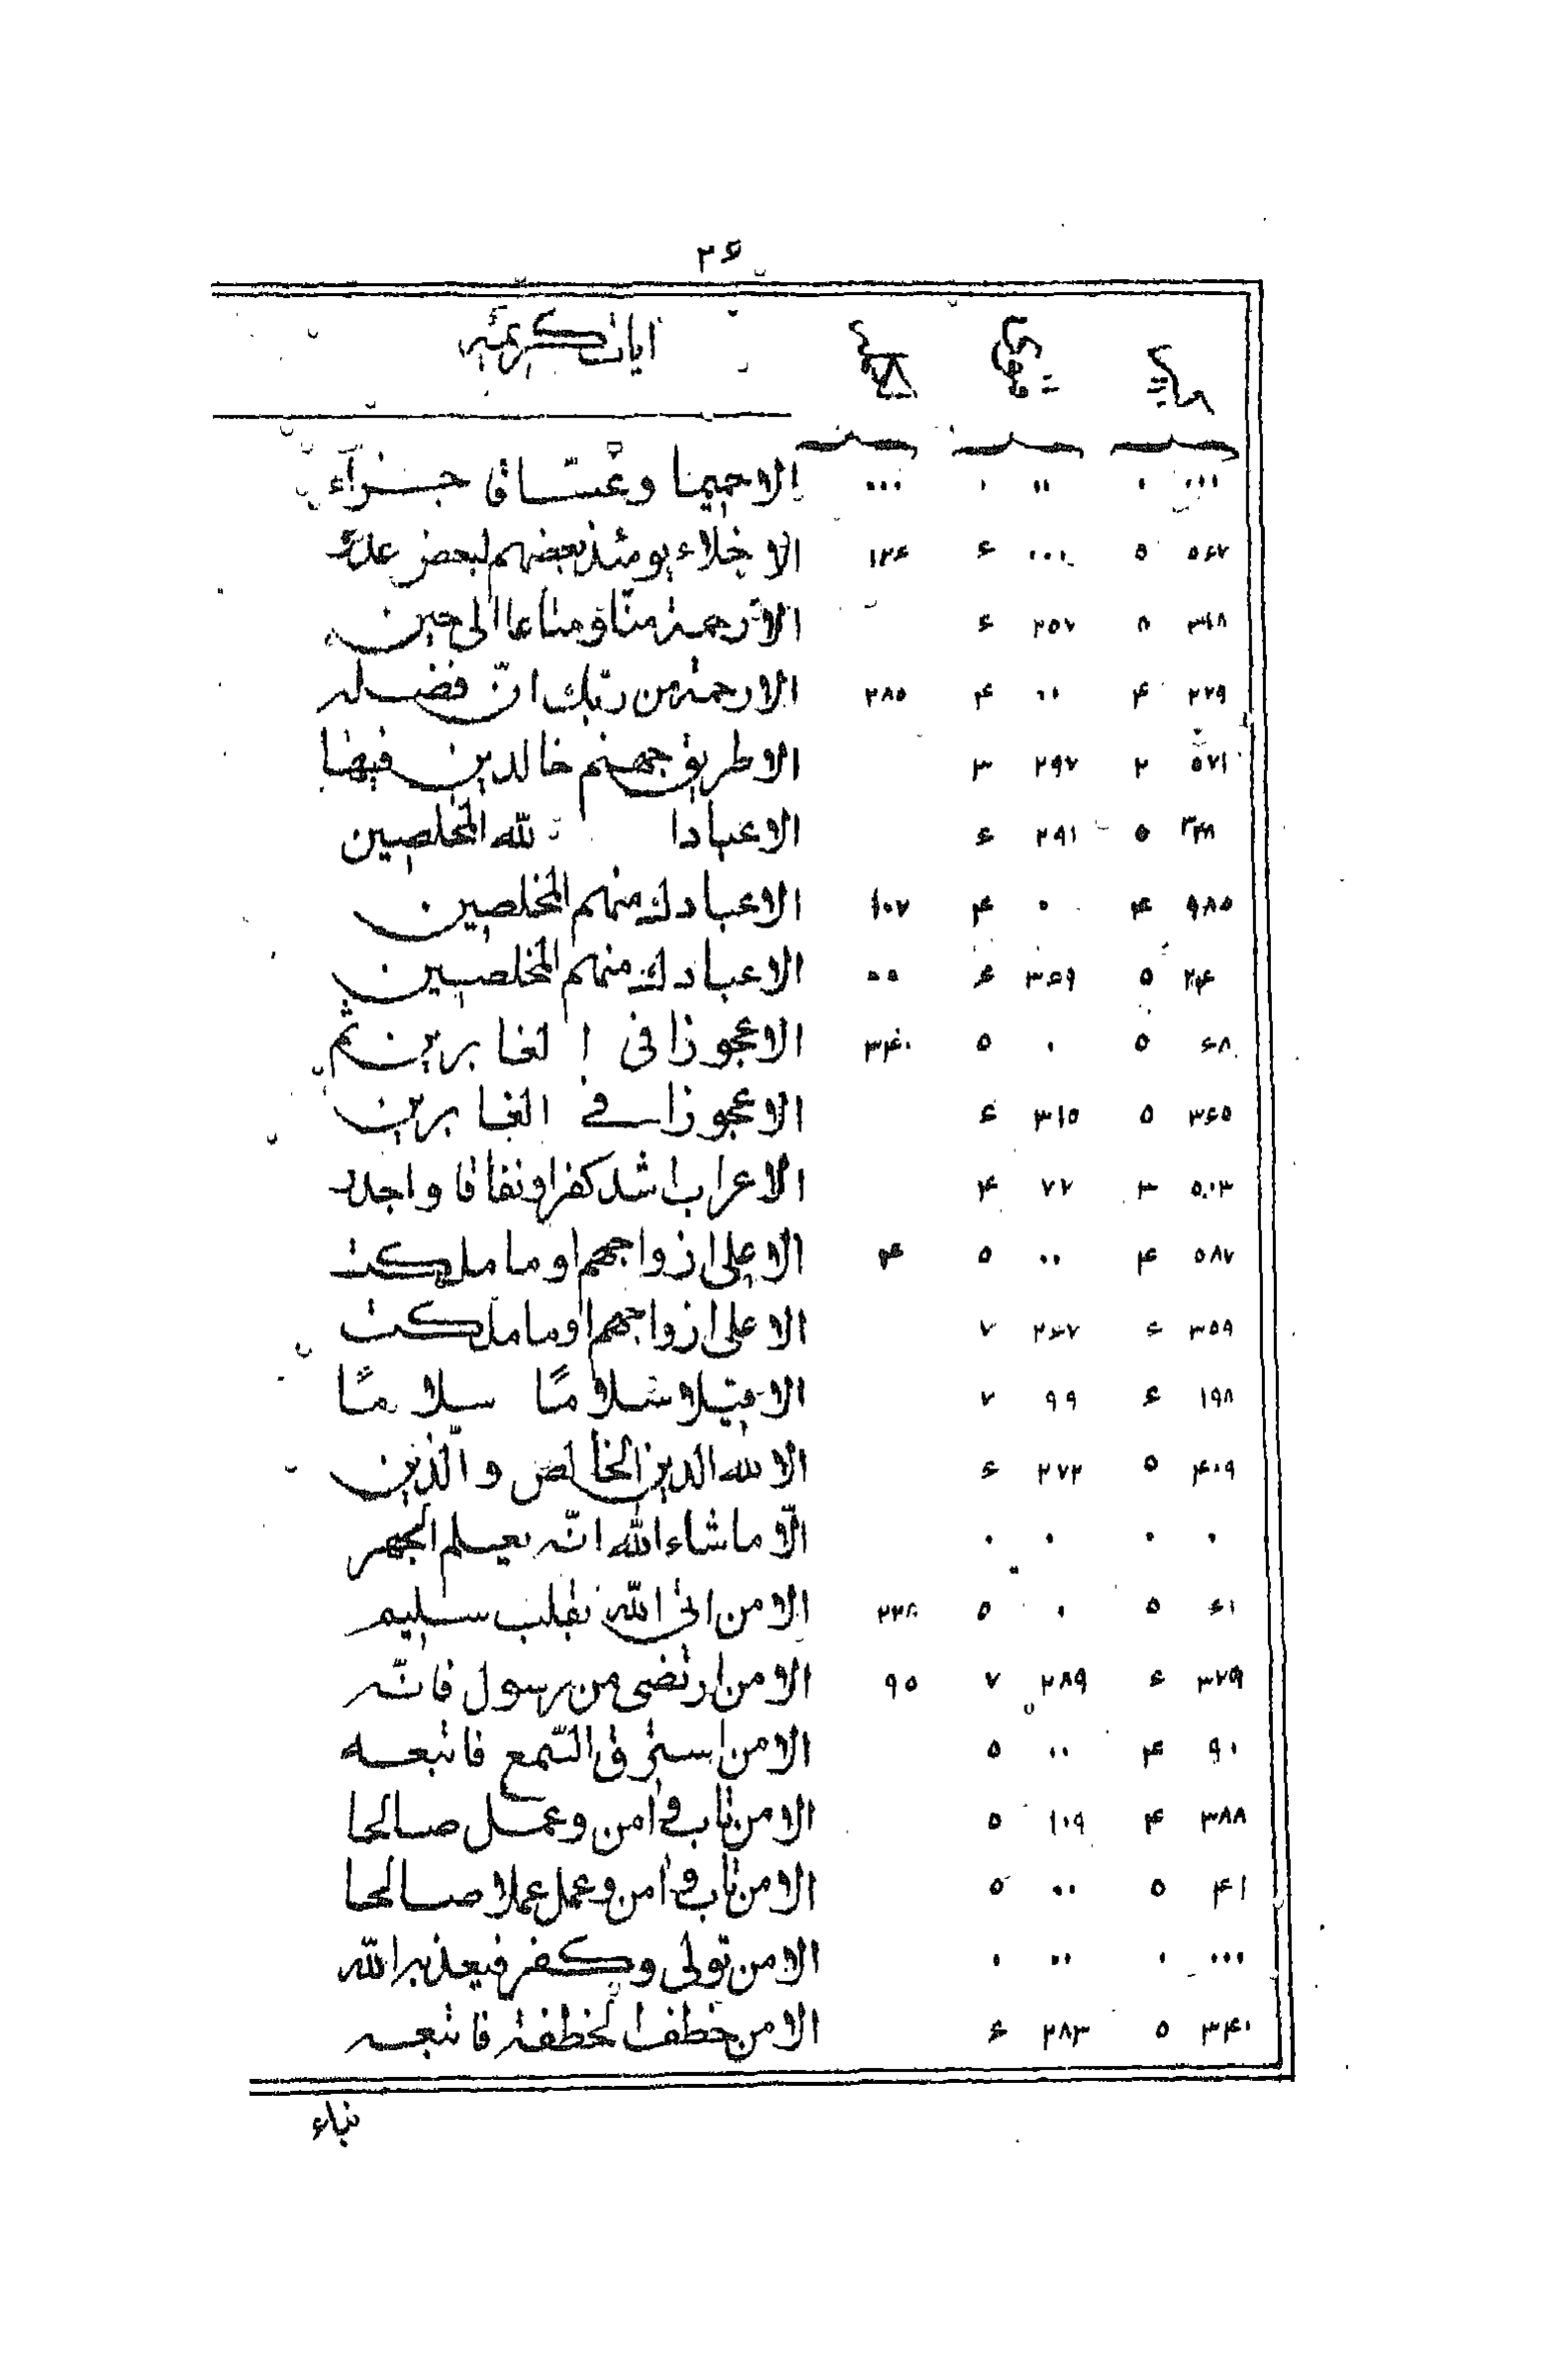 ۲۶
ایات کریمه
... . .. . ... الا حمیما و غسّاقا جزآء
۵۶۷ ۵ ... ۶ ۱۲۶ الاخلاء یومئذ بعضهم لبعض عدوّ
۳۶۸ ۵ ۲۵۷ ۶ الا رحمة منّا و متاعا الی حین
۲۲۹ ۴ .. ۴ ۲۸۵ الا رحمة من ربّک انّ فضله
۵۷۱ ۲ ۲۹۷ ۳ الا طریق جهنم خالدین فیها
۵ ۲۹۱ ۶ الا عبادا لله المخلصین
۹۸۵ ۴ ۰ ۴ ۱۰۷ الا عبادک منهم المخلصین
۲۴ ۵ ۳۶۹ ۶ ۵۵ الا عبادک منهم المخلصین
۶۸ ۵ ۰ ۵ ۳۴۰ الا عجوزا فی الغابرین ثم
۳۶۵ ۵ ۳۱۵ ۶ الا عجوزا فی الغابرین
۵۰۳ ۳ ۷۲ ۴ الاعراب اشد کفرا و نفاقا و اجدر
۵۸۷ ۴ .. ۵ ۴ الا علی ازواجهم او ما ملکت
۳۵۹ ۶ ۲۶۷ ۷ الا علی ازواجهم او ما ملکت
۱۹۸ ۶ ۹۹ ۷ الا قیلا سلامًا سلامًا
۴۰۹ ۵ ۲۷۲ ۶ الا لله الدین الخالص و الّذین
. . . . الّا ما شاء الله انّه یعلم الجهر
۶۱ ۵ ۰ ۵ ۲۲۸ الا من اتی الله بقلب سلیم
۳۷۹ ۶ ۲۸۹ ۷ ۹۵ الا من ارتضی من رسول فانّه
۹۰ ۴ .. ۵ الا من استرق السّمع فاتبعه
۳۸۸ ۴ ۱۰۹ ۵ الا من تاب و امن و عمل صالحا
۴۱ ۵ .. ۵ الا من تاب و امن و عمل عملا صالحا
... . .. . الا من تولی و کفر فیعذبه الله
۳۴۰ ۵ ۲۸۳ ۶ الا من خطف الخطفة فاتبعه